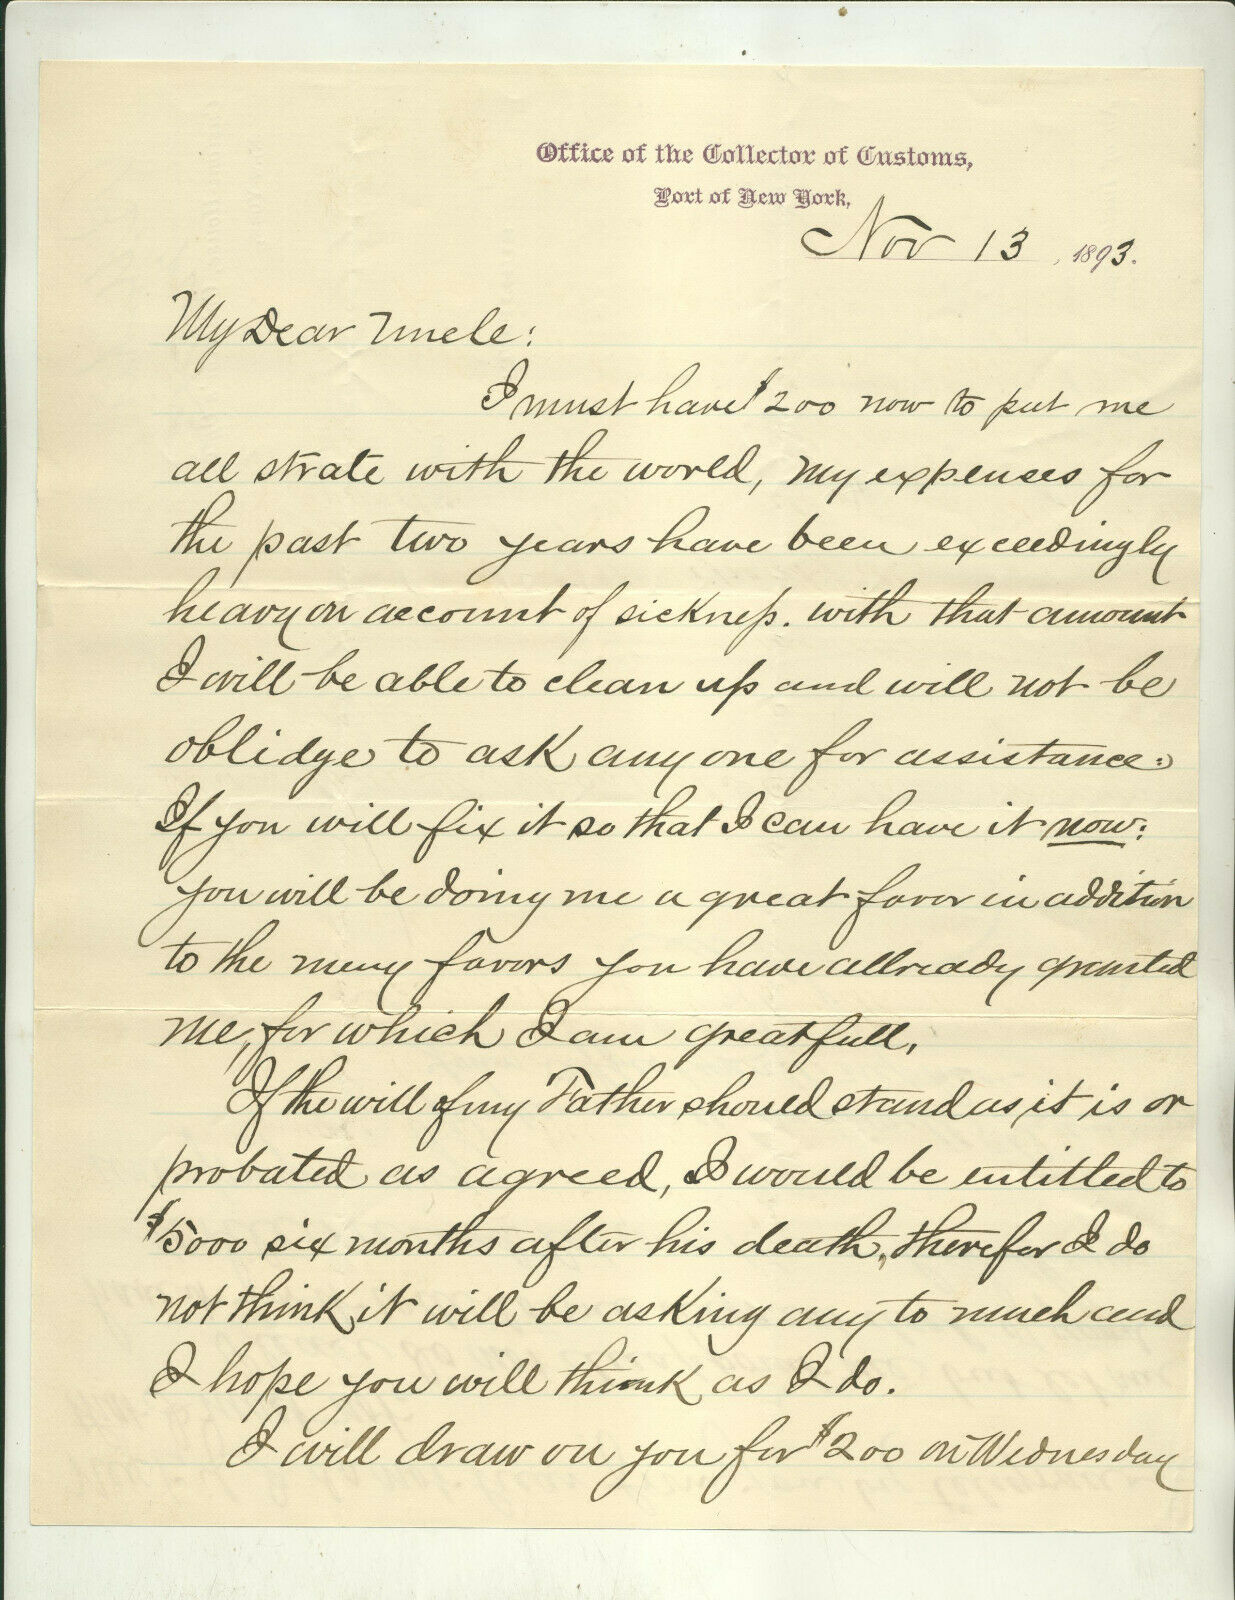 Office of the Collector of Customs,
Port of New York,
Nov 13, 1893.
My Dear Uncle:
I must have $200 now to put me
all strate with the world, my expenses for
the past two years have been exceedingly
heavy on account of sickness. with that amount
I will be able to clean up and will not be
oblidge to ask any one for assistance:
If you will fix it so that I can have it now:
you will be doing me a great favor in addition
to the many favors you have allready granted
me, for which I am greatfull.
If the will of my Father should stand as it is or
probated as agreed, I would be entitled to
$5000 six months after his death, therefor I do
not think it will be asking any to much and
I hope you will think as I do.
I will draw on you for $200 on Wednesday